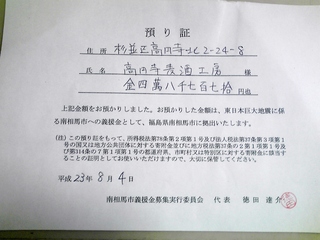 預り証
住所 杉並区高円寺北2-24-8
氏名 高円寺麦酒工房 様
金四萬八千七百七拾円也
上記金額をお預かりしました。お預かりした金額は、東日本巨大地震に係る南相馬市への義援金として、福島県南相馬市に拠出いたします。
(注)この預り証をもって、所得税法第78条第2項第1号及び法人税法第37条第3項第1号の国又は地方公共団体に対する寄附金並びに地方税法第37条の2第1項第1号及び第314条の7第1項第1号の都道府県、市町村又は特別区に対する寄附金に該当することの証明としてお使いいただきますので、大切に保管してください。
平成23年8月4日
南相馬市義援金募集実行委員会 代表 徳田達介